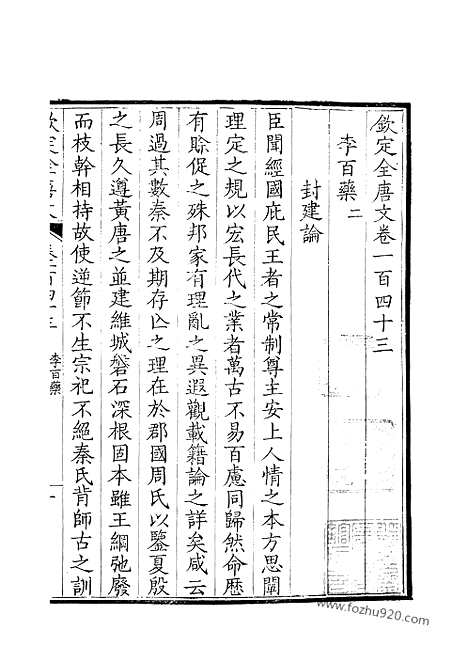 欽定全唐文卷一百四十三
李百藥二
封建論
臣聞經國庇民王者之常制尊主安上人情之本方思闡
理定之規以宏長代之業者萬古不易百慮同歸然命歴
有賒促之殊邦家有理亂之異遐觀載籍論之詳矣咸云
周過其數秦不及期存亾之理在於郡國周氏以鑒夏殷
之長久遵黃唐之並建維城磐石深根固本雖王綱弛廢
而枝幹相持故使逆節不生宗祀不絕秦氏背師古之訓
欽定全唐文
卷一百四十三
李百藥
一
www.fozhu920.com